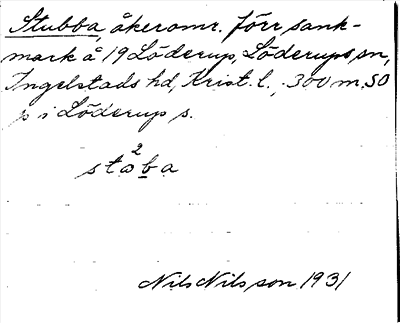 Stubba, åkeromr. förr sank-
mark å 19 Löderup, Löderups sn,
Ingelstads hd, Krist. l., 300 m. SO
p i Löderup s.
2
stoba
Nils Nilsson 1931